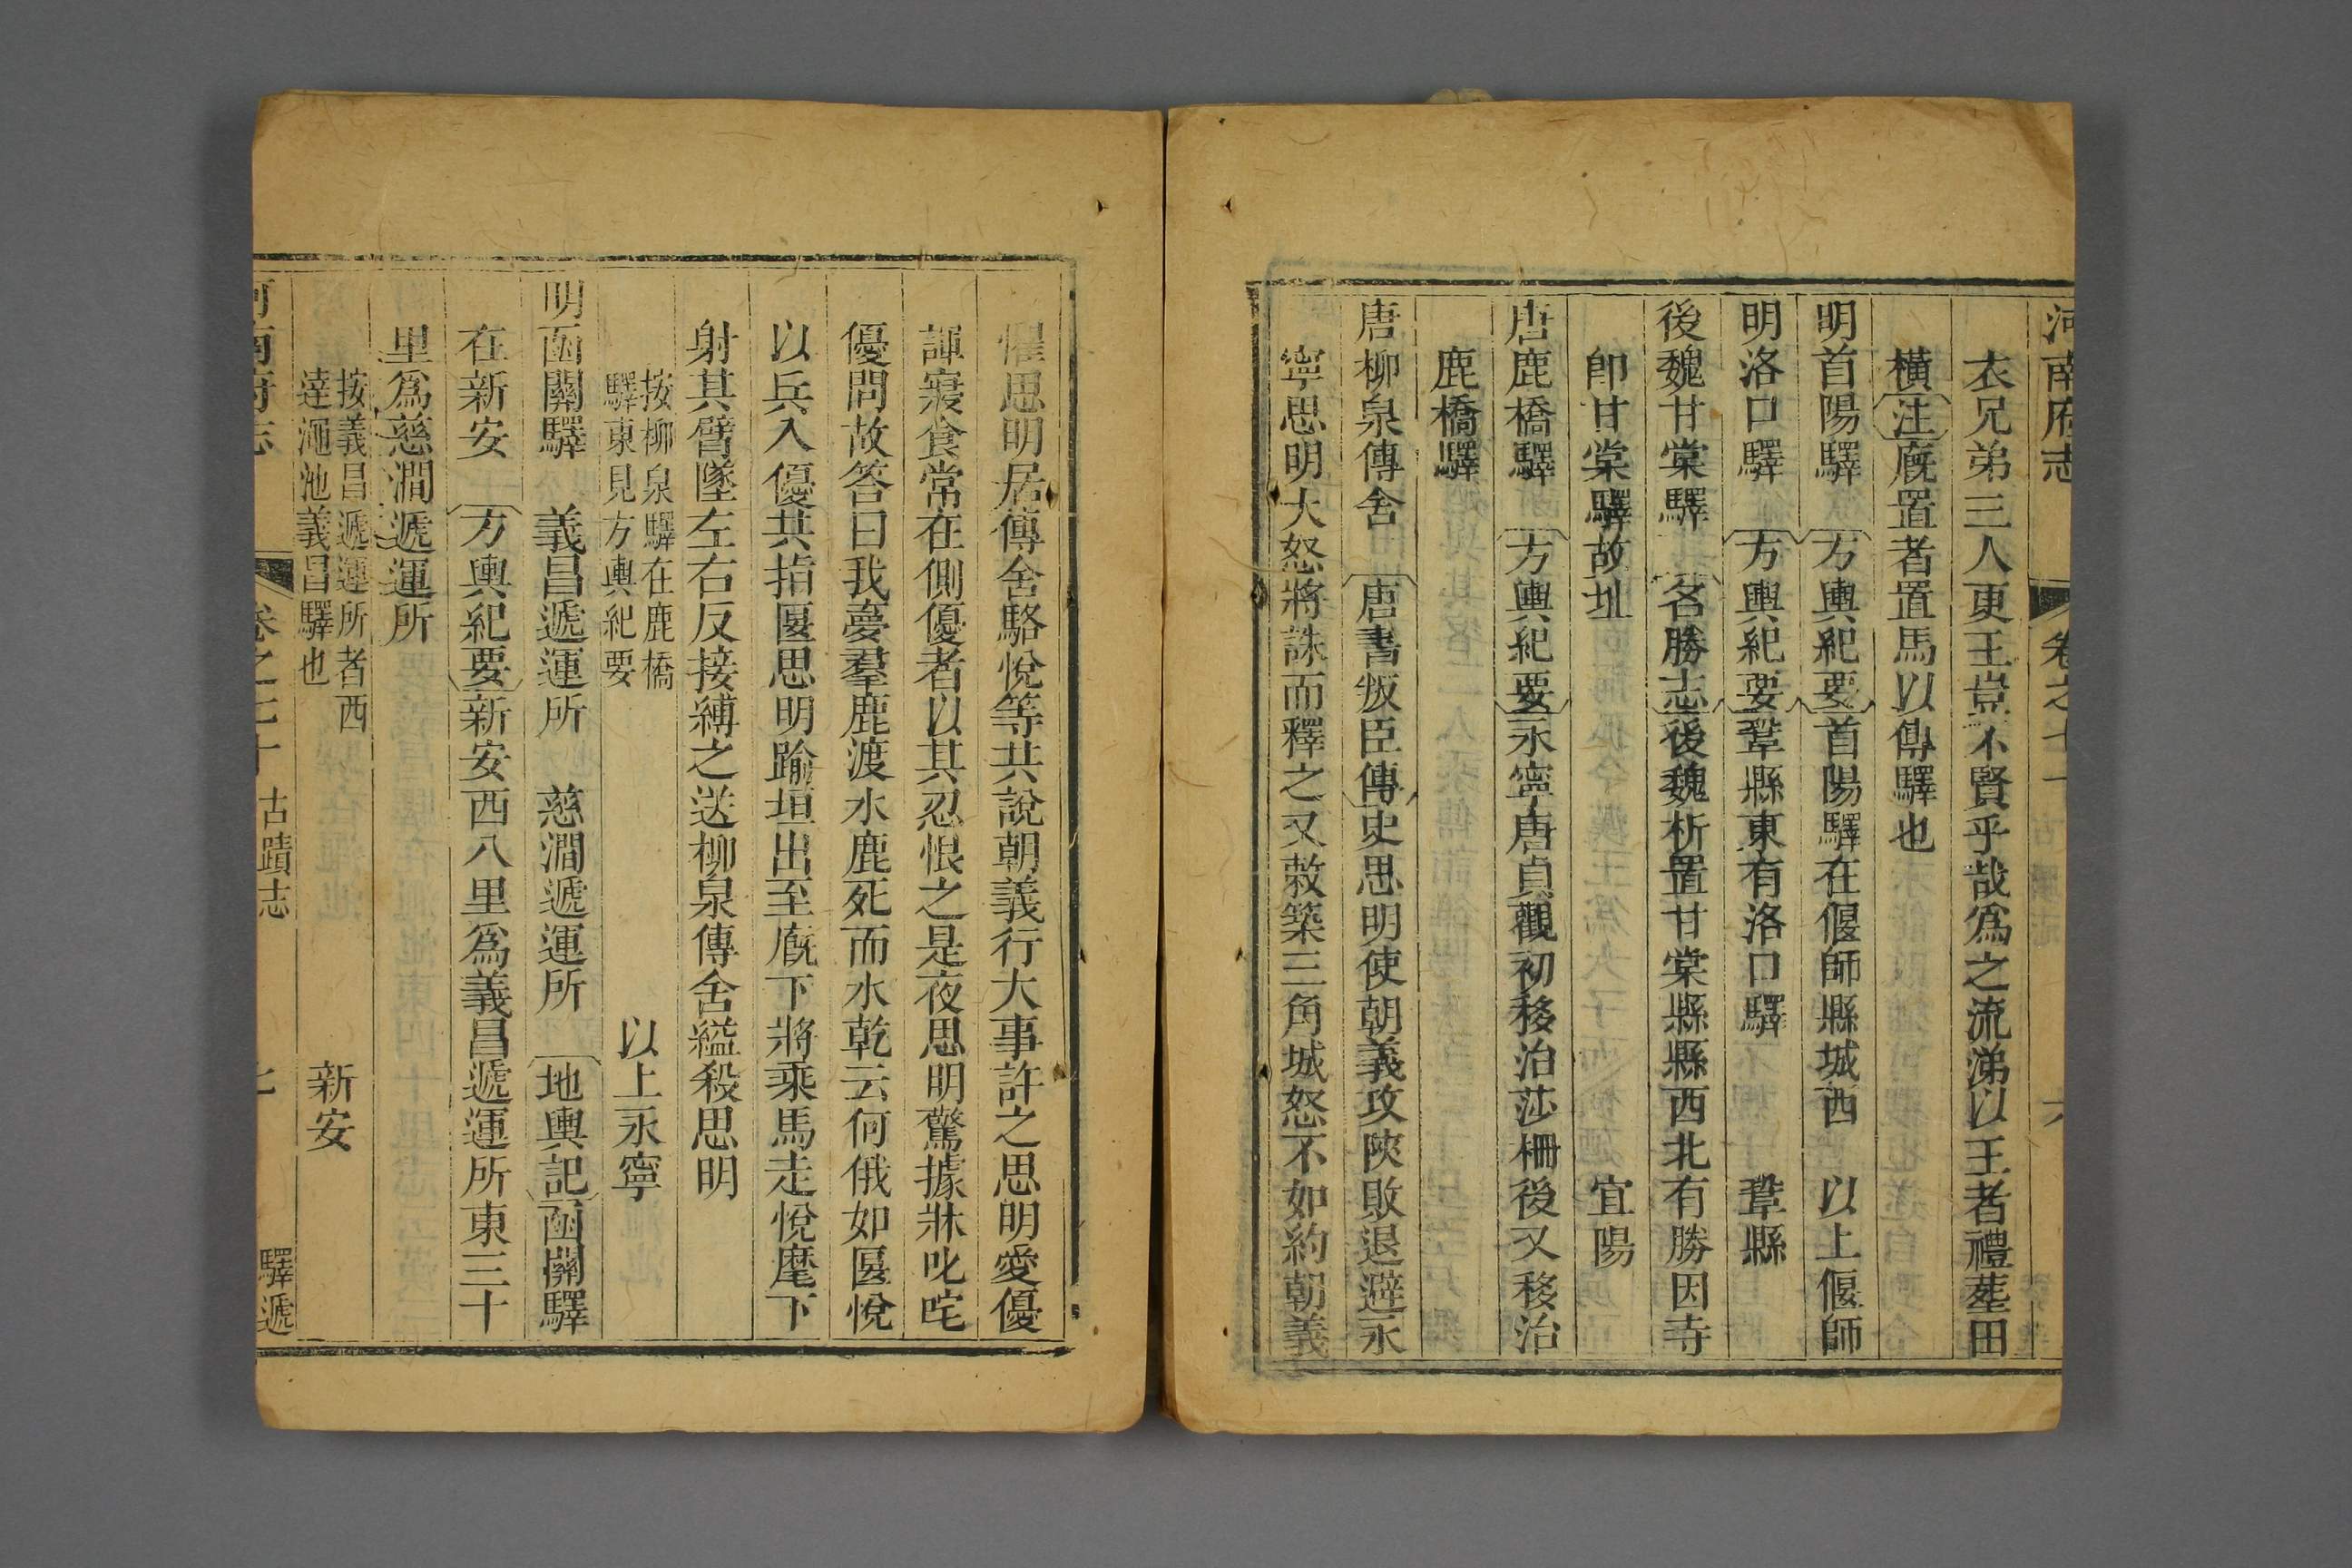 河南府志 卷之七十 古蹟志 六
衣兄弟三人更王豈不賢乎哉爲之流涕以王者禮塟田
橫注廐置者置馬以傳驛也
明首陽驛 方輿紀要首陽驛在偃師縣城西 以上偃師
明洛口驛 方輿紀要鞏縣東有洛口驛 鞏縣
後魏甘棠驛 名勝志後魏析置甘棠縣縣西北有勝因寺
卽甘棠驛故址 宜陽
唐鹿橋驛 方輿紀要永寧唐貞觀初移治莎柵後又移治
鹿橋驛
唐柳泉傳舍 唐書叛臣傳史思明使朝義攻陝敗退避永
寧思明大怒將誅而釋之又敕築三角城怒不如約朝義
懼思明居傳舍駱悅等共說朝義行大事許之思明愛優
諢寢食常在側優者以其忍恨之是夜思明驚據牀叱咤
優問故答曰我夢羣鹿渡水鹿死而水乾云何俄如匽悅
以兵入優共指匽思明踰垣出至廐下將乘馬走悅麾下
射其臂墜左右反接縛之送柳泉傳舍縊殺思明
按柳泉驛在鹿橋
驛東見方輿紀要 以上永寧
明函關驛 義昌遞運所 慈澗遞運所 地輿記函關驛
在新安 方輿紀要新安西八里爲義昌遞運所東三十
里爲慈澗遞運所
按義昌遞運所者西
達澠池義昌驛也 新安
河南府志 卷之七十 古蹟志 七 驛遞